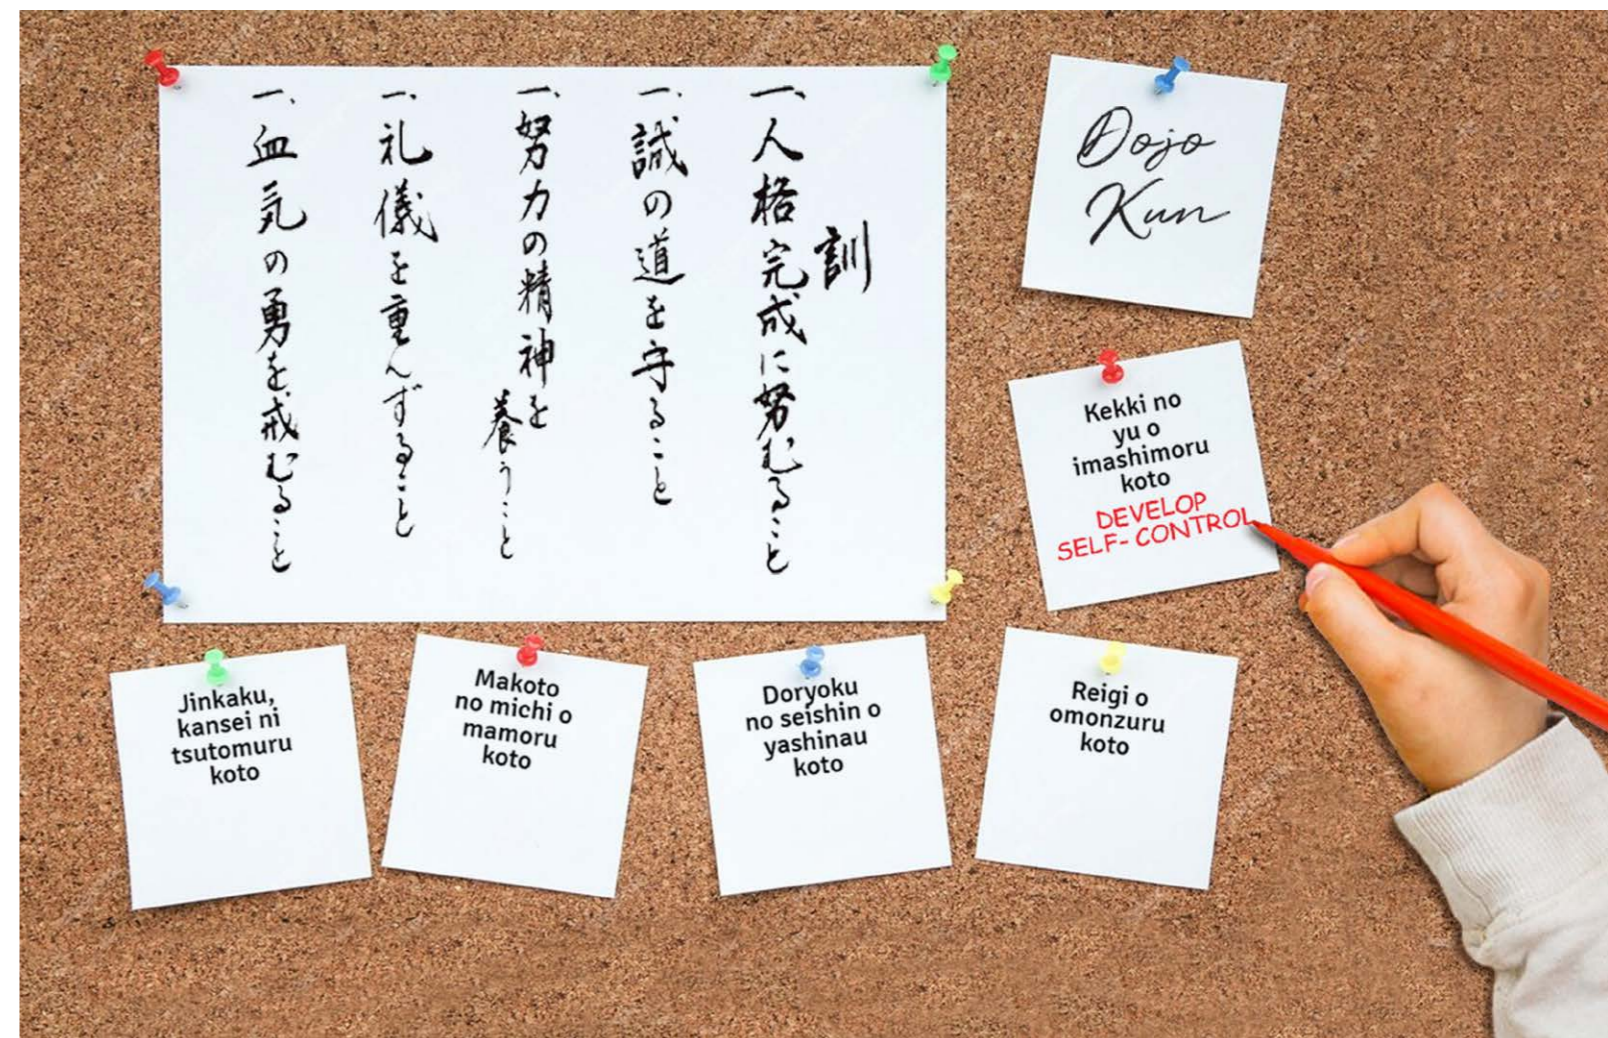 訓
一、人格完成に努むること
一、誠の道を守ること
一、努力の精神を養うこと
一、礼儀を重んずること
一、血気の勇を戒むること
Dojo
Kun
Kekki no
yu o
imashimoru
koto
DEVELOP
SELF-CONTROL
Jinkaku,
kansei ni
tsutomuru
koto
Makoto
no michi o
mamoru
koto
Doryoku
no seishin o
yashinau
koto
Reigi o
omonzuru
koto